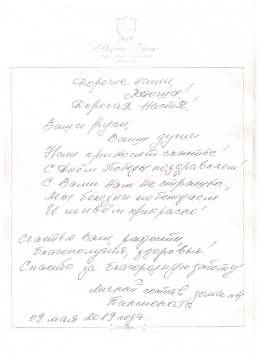 Дорогие наши,
Юноша!
Дорогая Настя!
Ваши руки,
Ваши души
Нам приносят счастье!
С Днём Победы поздравляем!
С Вами нам не страшно,
Мы болезни победаем
И живём прекрасно!
Счастья Вам, радости,
Благополучия, здоровья!
Спасибо за благородную заботу!
состав дома №4
Пансионата
09 мая 2019 года.